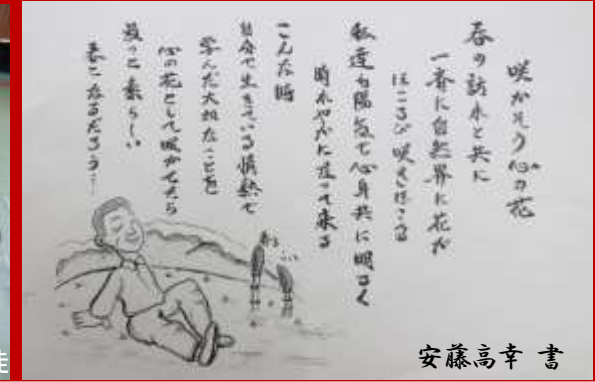 咲かそう心の花
春の訪れと共に
一斉に自然界に花が
ほころび咲きほこる
私達も陽気で心身共に明るく
晴れやかに なって来る
こんな時
自分で生きている情熱で
学んだ大切なことを
心の花として咲かせたら
最っと素らしい
春になるだろう…
安藤高幸 書